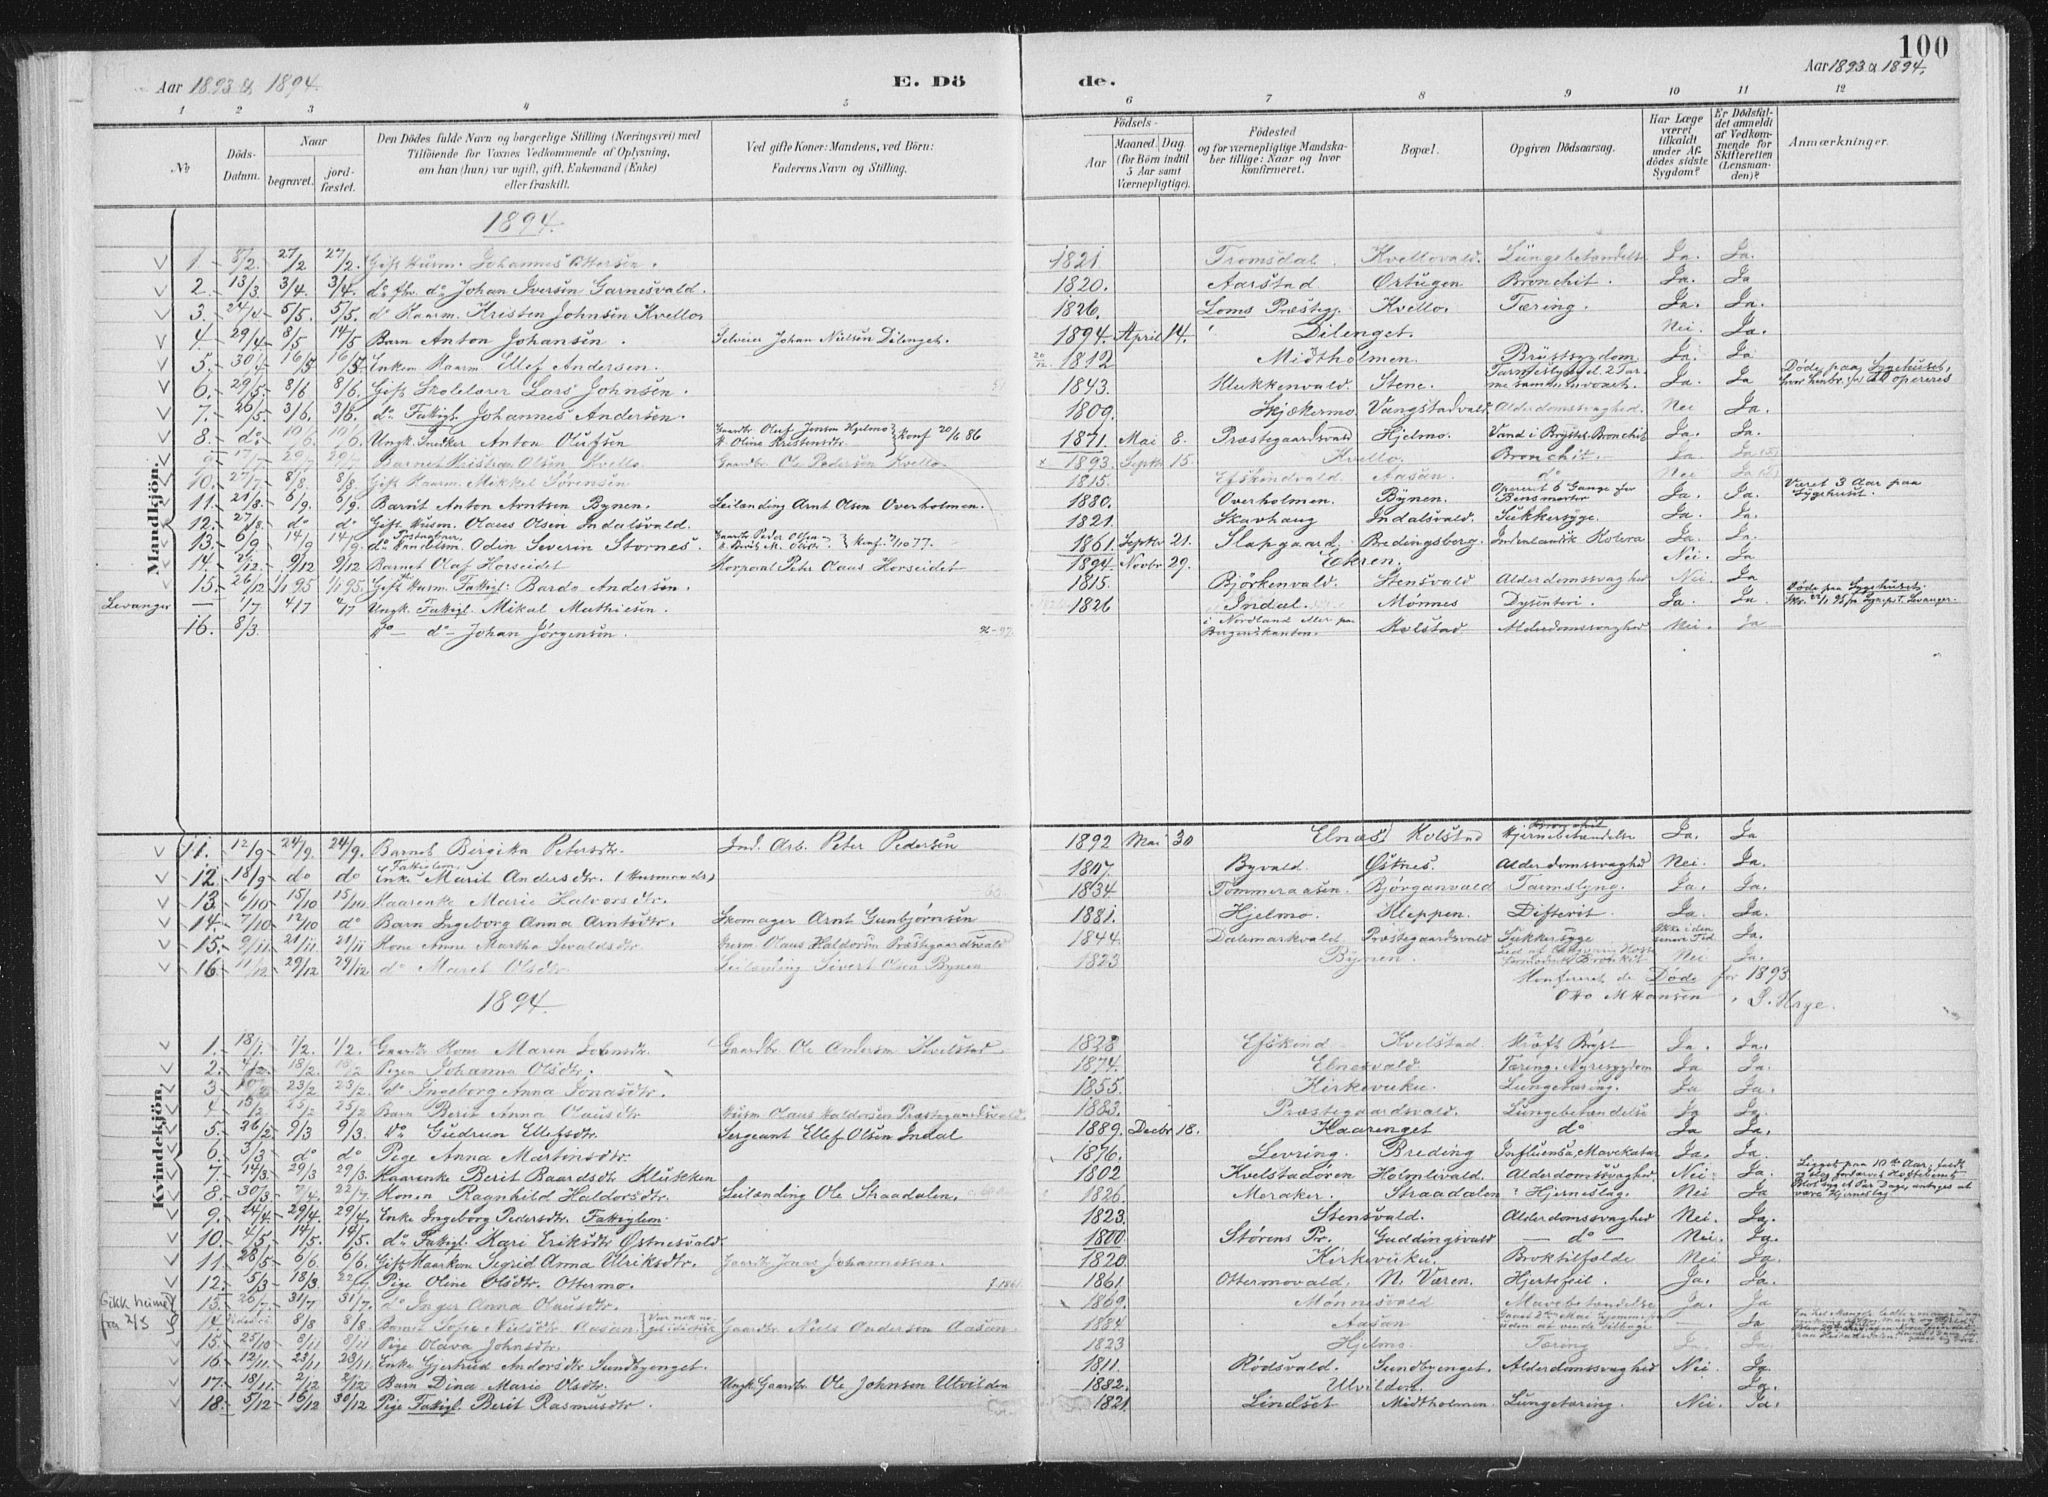 100
Aar 1893 & 1894.
E. Dö
de.
Aar 1893 & 1894.
1 2 3 4 5 6 7 8 9 10 11 12
No
Döds-Datum.
Naar
begravet.
jord-fæstet.
Den Dödes fulde Navn og borgerlige Stilling (Næringsvei) med
Tilföiende for Voxnes Vedkommende af Oplysning,
om han (hun) var ugift, gift, Enkemand (Enke)
eller fraskilt.
Ved gifte Koner: Mandens, ved Börn:
Faderens Navn og Stilling.
Födsels-
Aar
Maaned. Dag.
(for Börn indtil
5 Aar samt
Værnepligtige).
Födested
og for værnepligtige Mandska-
ber tillige: Naar og hvor
konfirmeret.
Bopæl.
Opgiven Dödsaarsag.
Har Læge
været
tilkaldt
under Af-
dödes sidste
Sygdom?
Er Dödsfal-
det anmeldt
af Vedkom-
mende for
Skifteretten
(Lensman-
den)?
Anmærkninger.
Mandkjön.
1894.
1. 8/2. 27/2 27/2. Gift Husm. Johannes Ottersen. 1821. Tromsdal. Kvellovald. Lungebetændelse Ja. Ja.
2. 13/3 3/4. 3/4. do do Johan Iversen Garnesvald. 1820. Aarstad Ortugen Bronchit. Ja. Ja
3. 24/4 5/5. 5/5. do Kaarm. Kristen Johnsen Kvello. 1826. Loms Præstegj. Kvello. Tæring. Ja. Ja.
4. 29/4 8/5 14/5 Barn Anton Johansen. Selveier Johan Nielsen Dilenget. 1894. April 14. Dilenget. Nei. Ja.
5. 30/4 16/5 16/5. Enkem. Kaarm. Ellef Andersen. 1812 Midtholmen. Brystsygdom Ja. Ja
6. 29/5. 8/6 8/6. Gift Skolelærer Lars Johnsen. 1843. Klukkenvald. Stene. Ja. Ja Døde paa Sygehuset,
7. 26/5. 3/6. 3/6. do Fattigl. Johannes Andersen. 1809. Skjækermo Vangstadvald. Alderdomssvaghed. Nei Ja.
8. do 10/6. 10/6. Ungk. Snedker Anton Olufsen Gaardbr. Oluf Jensen Hjelmo H. Oline Kristensdtr. konf 20/6 86 1871. Mai 8. Præstegaardsvald Hjelmo. Vand i Brystet. Bronchit Ja. Ja.
9. 17/7 29/7 29/7 Barnet Kristian Olsen Kvello Gaardbr. Ole Pedersen Kvello. 1893. Septbr 15. Kvello. Bronchit. Ja. Ja
10. 27/7 8/8 8/8. Gift Kaarm. Mikkel Sørensen 1815. Efskindvald. Aasan. do Nei Ja
11. 21/8. 6/9 6/9. Barnet Anton Arntsen Bynen. Leilænding Arnt Olsen Overholmen. 1880. Overholmen. Bynen. Opereret 6 Gange for Bensmerter Ja. Ja. Været 3 Aar paa Sygehuset.
12. 27/8. do do Gift Husm. Olaus Olsen Indalsvald. 1821. Skavhaug Indalsvald. Sukkersyge. Ja. Ja.
13. 6/9 14/9 14/9. do Handelsm. Odin Severin Stornes. Gaardbr Peder Olsen konf. 7/10 77. 1861. Septbr 21. Slapgaard Bredingsberg. Indenlandsk Kolera Ja. Ja.
14. 2/12. 9/12 9/12 Barnet Olaf Horseidet Korporal Peter Olaus Horseidet 1894. Novbr 29. Ekren. Nei. Ja
15. 26/12 1/1 95 1/1 95. Gift Husm. Fattigl. Bardo Andersen. 1815. Björkenvald. Stensvald Alderdomssvaghed Nei. Ja
Levanger — 1/7 4/7 4/7 Ungk. Fattigl. Mikal Mathiesen. 1826 Indal. Mönnes Dysenteri. Ja. Ja. Døde paa Sygehuset.
16. 8/3. Do do Johan Jørgensen. i Nordland eller paa Bergenskanten. Kolstad Alderdomssvaghed Nei. Ja
Kvindekjön.
11. 12/9 24/9. 24/9. Barnet Bergitta Petersdtr. Ind. Arb. Peter Pedersen 1892 Mai 30 Elnæs Kolstad Bronchit Hjernebetændelse Ja. Ja
12. 18/9 do do Fattiglem Enke Marit Andersdtr. (Husmands) 1817. Byvald. Østnes. Alderdomssvaghed Nei. Ja.
13. 6/10 15/10 15/10. Kaarenke Marie Halvorsdtr. 1834 Tømmeraasen. Bjørganvald Tarmslyng. Ja. Ja.
14. 7/10 12/10 do Barn Ingeborg Anna Arntsdtr. Skomager Arnt Gunbjørnsen 1881. Hjelmo. Kleppen. Difterit. Ja. Ja.
15. 9/11. 21/11. 21/11 Kone Anne Martha Sevaldsdtr. Husm. Olaus Haldorsen Præstegaardsvald 1844. Dalemarkvald. Præstegaardsvald Sukkersyge Ikke i den senere Tid Ja.
16 11/12 29/12 29/12 do Maret Olsdtr. Leilænding Sivert Olsen Bynen 1823 Bynen. Nei Ja.
Konfereret de Døde for 1893
Otto M Hansen
1894.
1. 18/1. 1/2. 1/2. Gaardbr. Kone Maren Johnsdtr. Gaardbr. Ole Andersen Kvelstad. 1828 Efskind Kvelstad. Kræft i Bryst Ja. Ja.
2. 4/2. 18/2. 18/2 Pigen Johanna Olsdtr. 1874. Elnesvald. Tæring. Nyresygdom Ja Ja.
3 23/2 23/2. do Ingeborg Anna Jonasdtr. 1855. Kirkevuku. Lungetæring. Ja Ja.
4 15/2 25/2 25/2 Barn Berit Anna Olausdtr Husm Olaus Haldorsen Præstegaardsvald 1883. Præstegaardsvald. Lungebetændelse Ja Ja.
5. 26/2. 9/3 9/3. Do Gudrun Ellefsdtr. Sergeant Ellef Olsen Indal 1889. Decbr 18. Kaarenget do Ja Ja.
6. 3/3 do do Pige Anna Martinsdtr. 1876. Levring. Breding Influensa, Mavekatar Ja. Ja.
7. 14/3. 29/3 29/3. Kaarenke Berit Baardsdtr Klukken 1802 Kvelstadøren Holmlivald. Alderdomssvaghed. Nei. Ja.
8. 30/3 7/4. 22/7. Konen Ragnhild Haldorsdtr. Leilænding Ole Straadalen. 1826. Meraker. Straadalen Hjerneslag. Nei Ja
9. 24/4. 29/4. 29/4. Enke Ingeborg Pedersdtr. Fattiglem. 1823. Stensvald. Alderdomssvaghed Nei. Ja.
10. 4/5 14/5. 14/5. do Fattigl. Kari Eriksdtr Østnesvald. 1800 Størens Pr. Guddingsvald — do — Nei. Ja.
11. 28/5 6/6. 6/6. Gift Kaarkone Sigrid Anna Ulriksdtr. Gaardbr Jonas Johannessen. 1820. Kirkevuku. Broktilfælde Nei Ja.
12. 5/3 18/3 22/7 Pige Oline Olsdtr. Ottermo. 1861. Ottermovald. N. Væren. Hjertefeil. Ja. Ja.
Gikk heime fra 2/5
13. 26/7. 31/7 31/7. do Inger Anna Olausdtr. 1869. Mönnesvald Mavebetændelse Ja. Ja
14. 8/8 8/8. Barnet Sofie Nielsdtr Aasan. Gaardbr. Niels Andersen Aasan. 1884 Aasan — Ja
15. 25/10 8/11 8/11 Pige Olava Johnsdtr. 1823 Hjelmo Tæring
16. 12/11. 23/11 23/11. Enke Gjertrud Andorsdtr. Sundbyenget. 1811. Rödsvald. Sundbyenget. Alderdomssvaghed Nei. Ja
17. 18/11. 2/12 2/12. Barn Dina Marie Olsdtr. Ungk. Gaardbr. Ole Johnsen Ulvilden 1882. Ulvilden. Ja.
18. 5/12 16/12 30/12 Pige Fattigl. Berit Rasmusdtr. 1821 Lindset Midtholmen. Lungetæring. Nei. Ja.